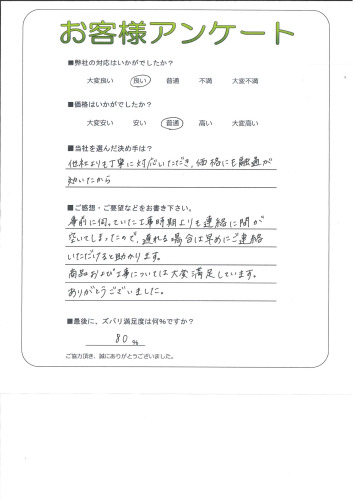 お客様アンケート
■弊社の対応はいかがでしたか？
大変良い 良い 普通 不満 大変不満
■価格はいかがでしたか？
大変安い 安い 普通 高い 大変高い
■当社を選んだ決め手は？
他社よりも丁寧に対応いただき、価格にも融通が
効いたから
■ご感想・ご要望などをお書き下さい。
事前に伺っていた工事時期よりも連絡に間が
空いてしまったので、遅れる場合は早めにご連絡
いただけると助かります。
商品および工事については大変満足しています。
ありがとうございました。
■最後に、ズバリ満足度は何%ですか？
80 %
ご協力頂き、誠にありがとうございました。